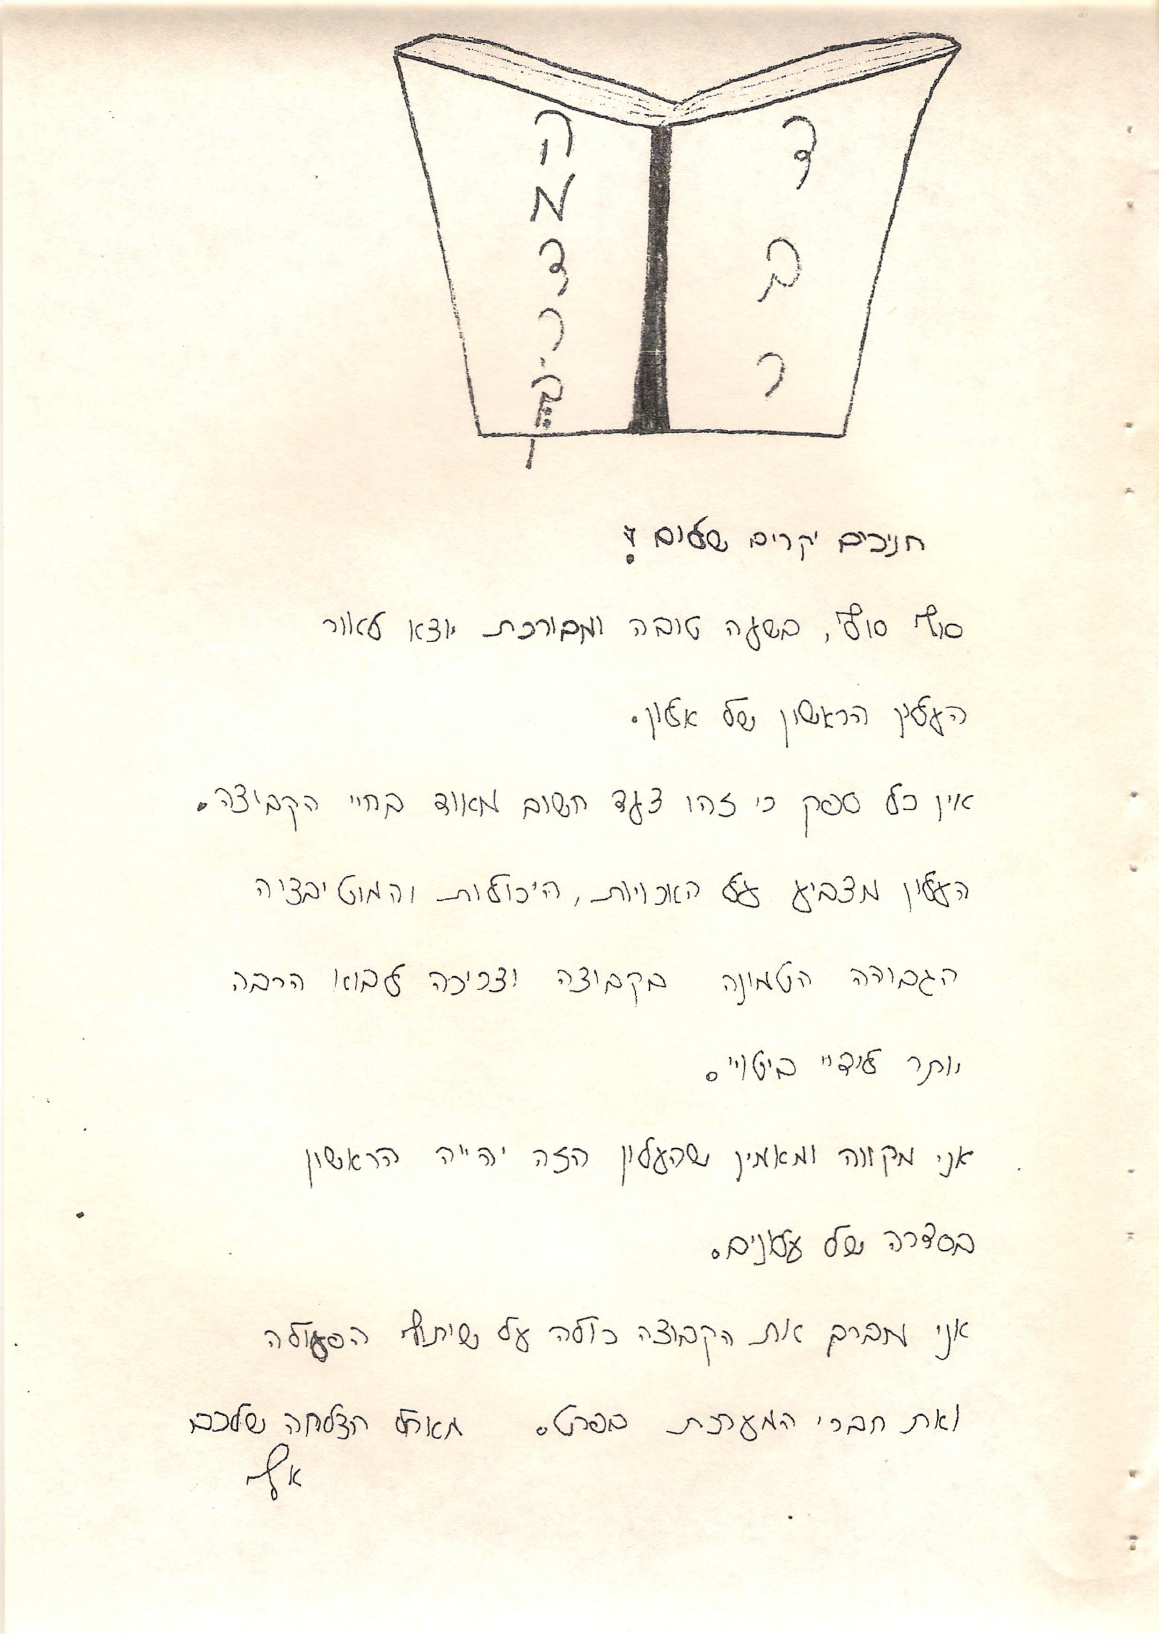 דבר
המדריך
חניכים יקרים שלום!
סוף סוף, בשעה טובה ומבורכת יוצא לאור
העלון הראשון של אלון.
אין כל ספק כי זהו צעד חשוב מאוד בחיי הקבוצה.
העלון מצביע על האכויות, היכולות והמוטיבציה
הגבוהה הטמונה בקבוצה וצריכה לבוא הרבה
יותר לידיי ביטויי.
אני מקווה ומאמין שהעלון הזה יהייה הראשון
בסדרה של עלונים.
אני מברך את הקבוצה כולה על שיתוף הפעולה
ואת חברי המערכת בפרט. מאחל הצלחה שלכם